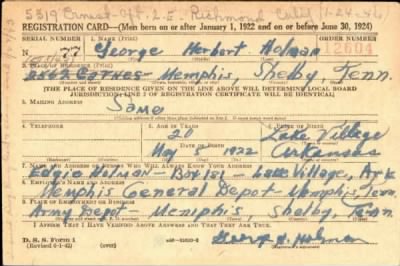 5319 Ernest Apt. 2.E. Richmond Calif 1-24-46
REGISTRATION CARD—(Men born on or after January 1, 1922 and on or before June 30, 1924)
SERIAL NUMBER 1. NAME (Print) ORDER NUMBER
N 77 George Herbert Holman 12604
2. PLACE OF RESIDENCE (Print)
Memphis, Shelby, Tenn.
[THE PLACE OF RESIDENCE GIVEN ON THE LINE ABOVE WILL DETERMINE LOCAL BOARD
JURISDICTION; LINE 2 OF REGISTRATION CERTIFICATE WILL BE IDENTICAL]
3. MAILING ADDRESS
Same
4. TELEPHONE 5. AGE IN YEARS 6. PLACE OF BIRTH
20 Lake Village
DATE OF BIRTH
1922 Arkansas
7. NAME AND ADDRESS OF PERSON WHO WILL ALWAYS KNOW YOUR ADDRESS
Holman - Box 181 - Lake Village, Ark
8. EMPLOYER'S NAME AND ADDRESS
Memphis General Depot Memphis, Tenn
9. PLACE OF EMPLOYMENT OR BUSINESS
Army Depot - Memphis, Shelby, Tenn
I AFFIRM THAT I HAVE VERIFIED ABOVE ANSWERS AND THAT THEY ARE TRUE.
D. S. S. Form 1
(Revised 6-1-42) (over)
George H. Holman